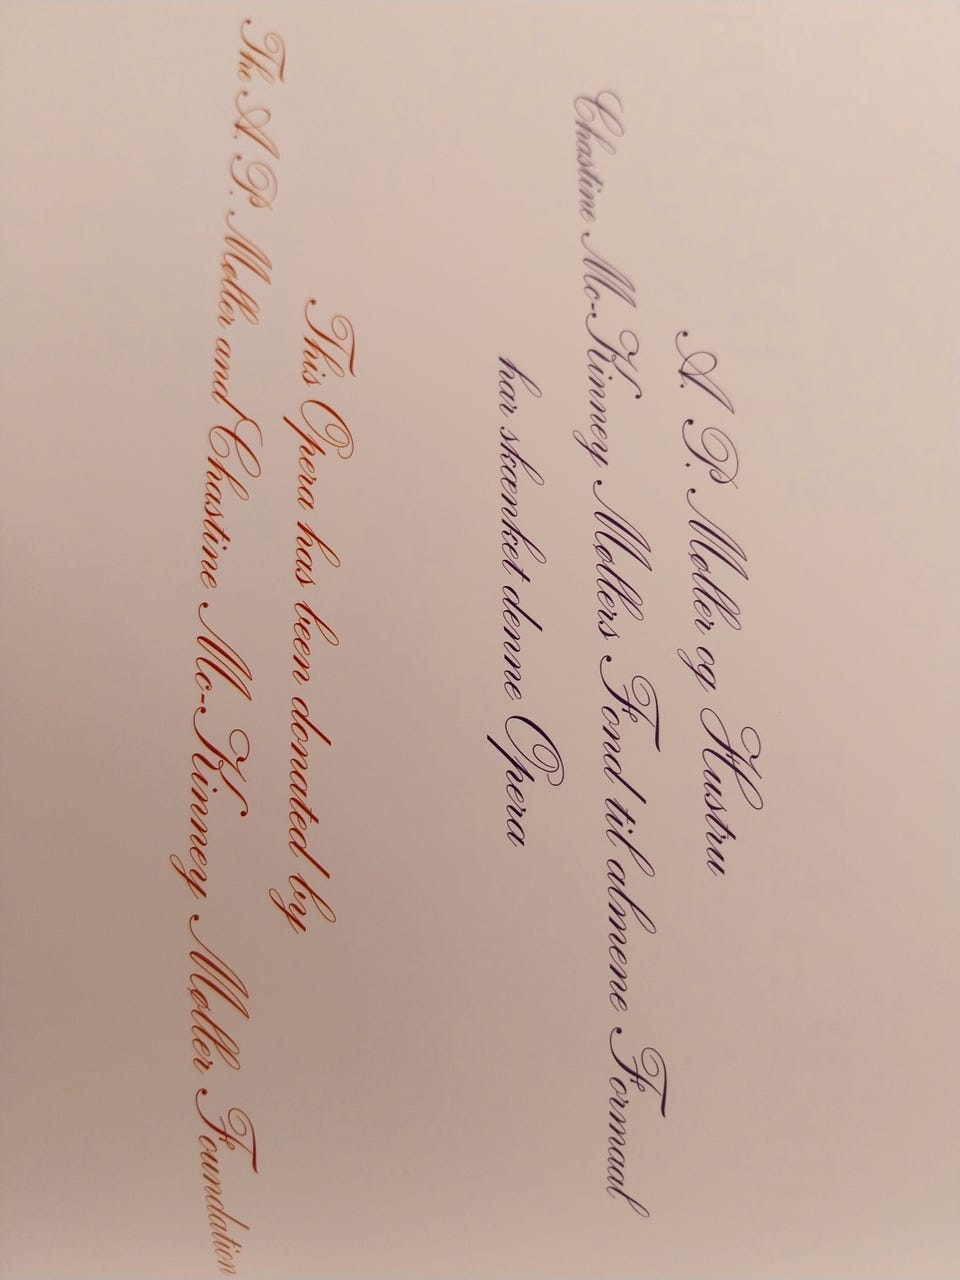 A. P. Møller og Hustru
Chastine Mc-Kinney Møllers Fond til almene Formaal
har skænket denne Opera
This Opera has been donated by
The A. P. Møller and Chastine Mc-Kinney Møller Foundation